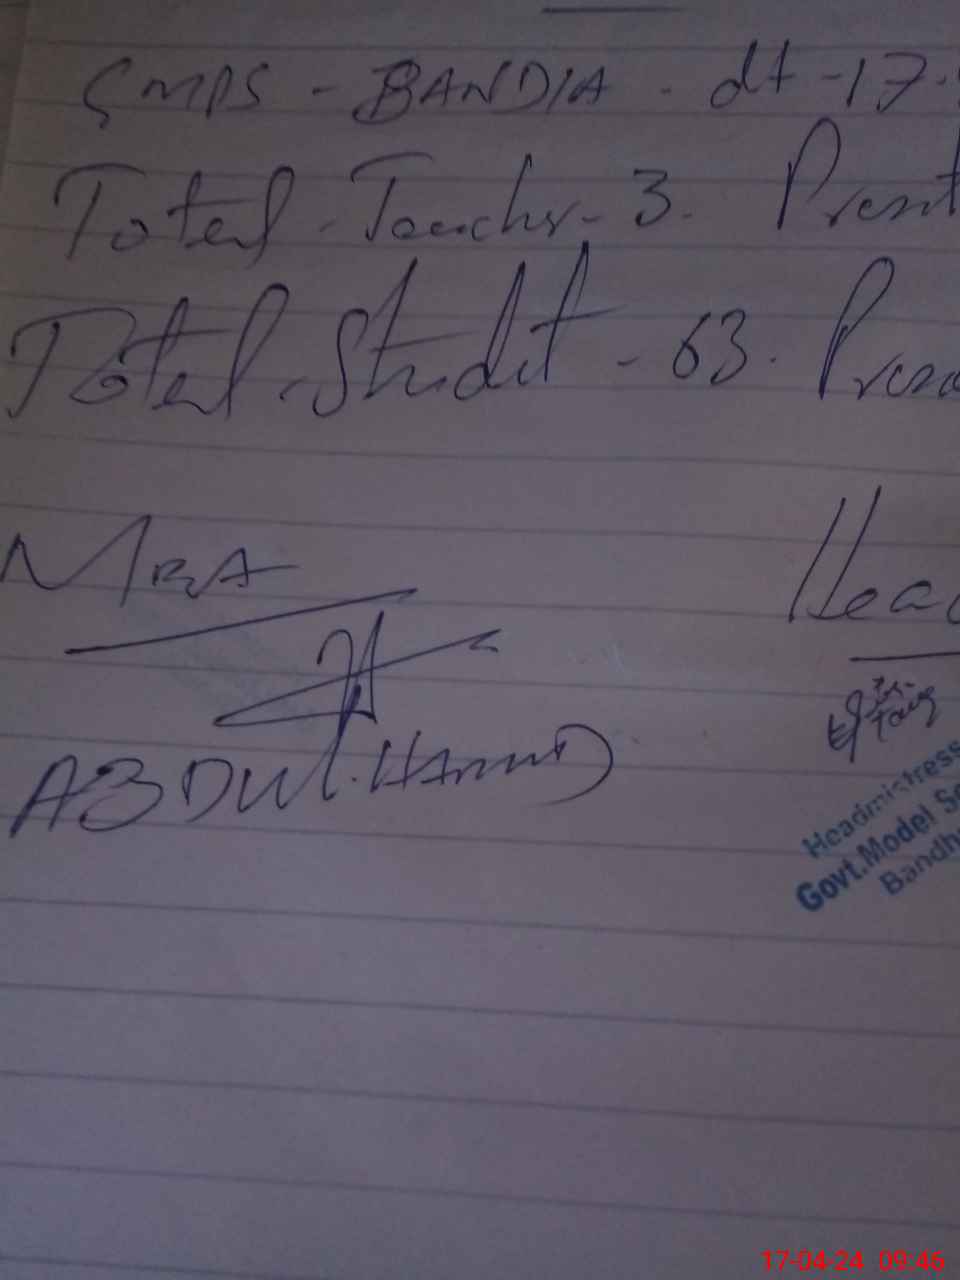 GMPS - BANDIA - dt - 17.
Total - Teacher - 3. Presnt
Total - Studet - 63. Prese
MRA
Head
ABDUL. HAMID
Headmistress
Govt.Model Sc
Bandh
17-04-24 09:46